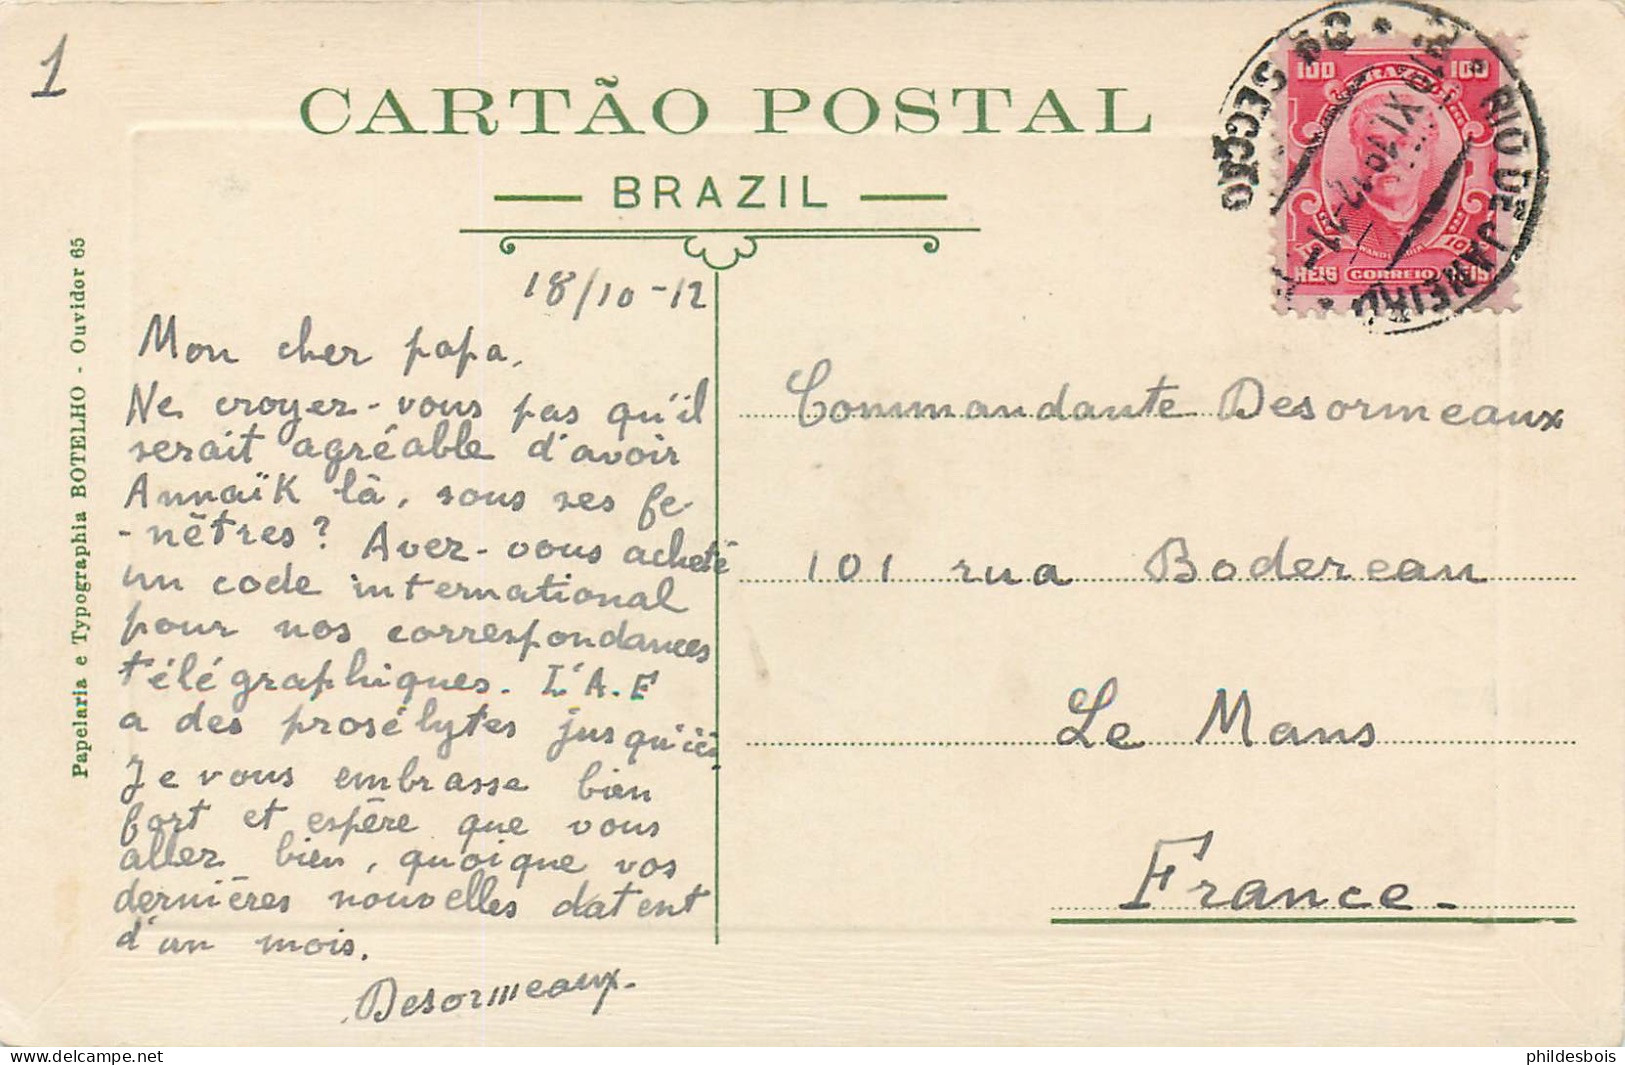 1
CARTÃO POSTAL
BRAZIL
Papelaria e Typographia BOTELHO - Ouvidor 65
100 100
REIS CORREIO
RIO DE JANEIRO
SECÇÃO
18/10-12
Mon cher papa,
Ne croyez-vous pas qu'il
serait agréable d'avoir
Annaïk là, sous ses fe-
-nêtres? Avez-vous acheté
un code international
pour nos correspondances
télégraphiques. L'A.F
a des prosélytes jusqu'ici.
Je vous embrasse bien
fort et espère que vous
allez bien, quoique vos
dernières nouvelles datent
d'un mois.
Desormeaux.
Commandante Desormeaux
101 rua Bodereau
Le Mans
France.
phildesbois